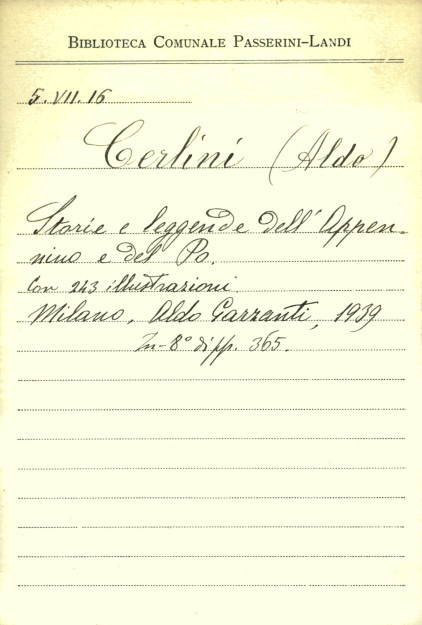 BIBLIOTECA COMUNALE PASSERINI-LANDI
5.VII.16
Cerlini (Aldo)
Storie e leggende dell'Appen-
nino e del Po.
Con 243 illustrazioni.
Milano, Aldo Garzanti, 1939
In-8° di pp. 365.